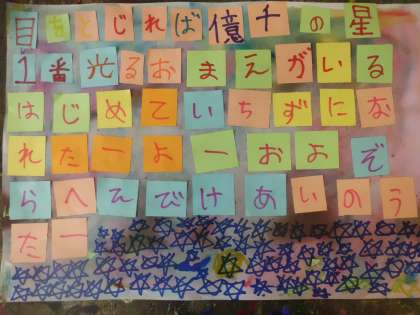 目をとじれば億千の星
1番光るおまえがいる
はじめていちずにな
れたーよーおよぞ
らへとんでけあいのう
たー